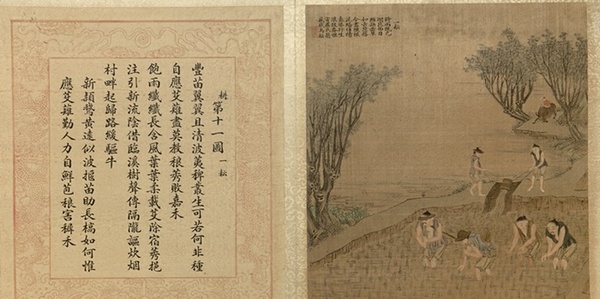 耕 第十一圖 一耘
豐苗翼翼且清波荑稗叢生可若何非種
自應芟薙盡莫教稂莠敗嘉禾
飽雨纖纖長含風葉葉柔載芟除宿莠挹
注引新流陰借臨溪樹聲傳隔隴謳炊烟
村畔起歸路緩驅牛
新穎鶖黃遠似波揠苗助長槁如何惟
應芟薙勤人力自鮮苞稂害稱禾
一耘